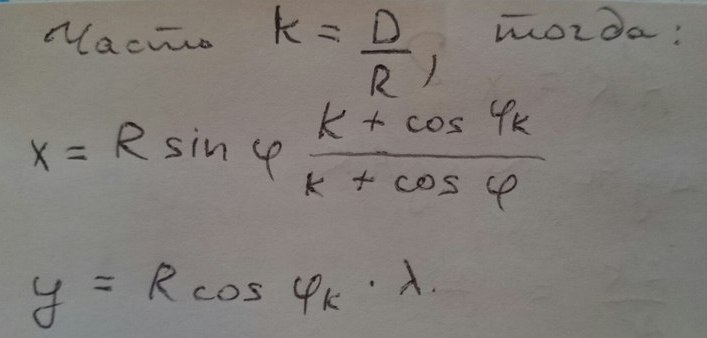 Часто k = D/R, тогда:
x = R sin φ (k + cos φₖ)/(k + cos φ)
y = R cos φₖ · λ.